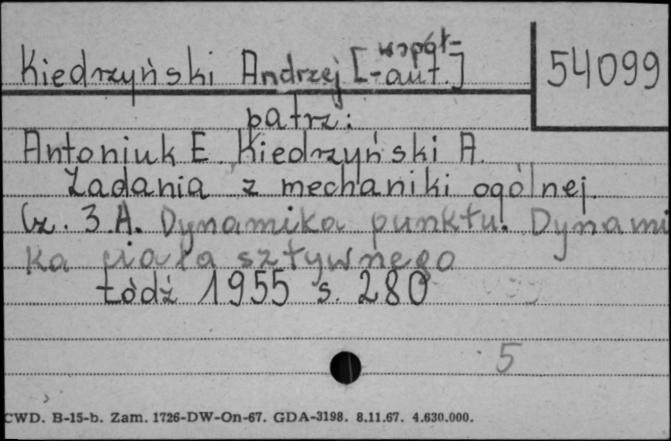 Kiedrzyński Andrzej [współ-aut.]
54099
patrz:
Antoniuk E. Kiedrzyński A.
Zadania z mechaniki ogólnej.
Cz. 3.A. Dynamika punktu. Dynami
ka ciała sztywnego
Łódź 1955 s. 280
5
CWD. B-15-b. Zam. 1726-DW-On-67. GDA-3198. 8.11.67. 4.630.000.